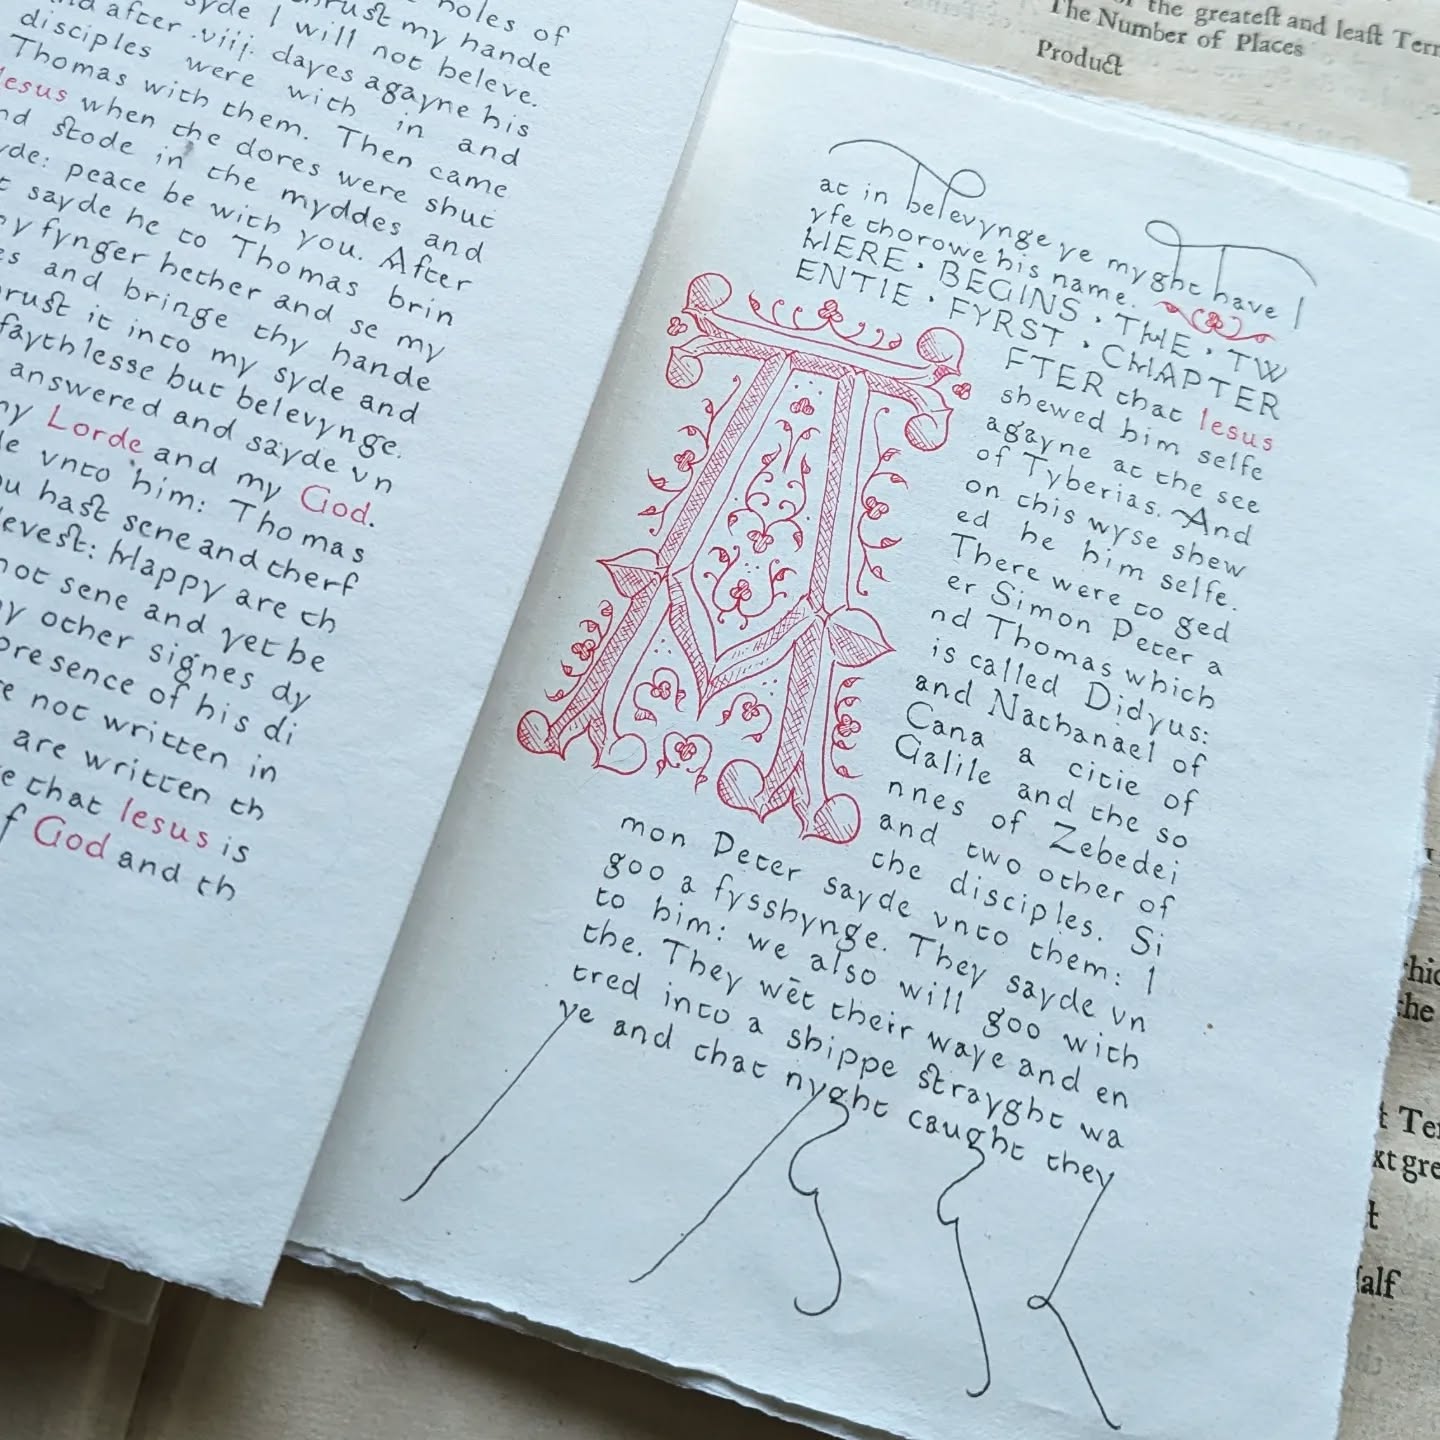 holes of
syde I will not beleve.
after .viij. dayes agayne his
disciples were with in and
Thomas with them. Then came
Iesus when the dores were shut
stode in the myddes and
peace be with you. After
sayde he to Thomas brin
fynger hether and se my
and bringe thy hande
it into my syde and
faythlesse but belevynge.
answered and sayde vn
Lorde and my God.
vnto him: Thomas
hast sene and therf
Happy are th
not sene and yet be
other signes dy
presence of his di
not written in
are written th
that Iesus is
God and th
at in belevynge ye myght have l
yfe thorowe his name.
HERE · BEGINS · THE · TW
ENTIE · FYRST · CHAPTER
AFTER that Iesus
shewed him selfe
agayne at the see
of Tyberias. And
on this wyse shew
ed he him selfe.
There were to ged
er Simon Peter a
nd Thomas which
is called Didyus:
and Nathanael of
Cana a citie of
Galile and the so
nnes of Zebedei
and two other of
the disciples. Si
mon Peter sayde vnto them: I
goo a fysshynge. They sayde vn
to him: we also will goo with
the. They wēt their waye and en
tred into a shippe strayght wa
ye and that nyght caught they
the greateſt and leaſt Term
The Number of Places
Product
the
Ter